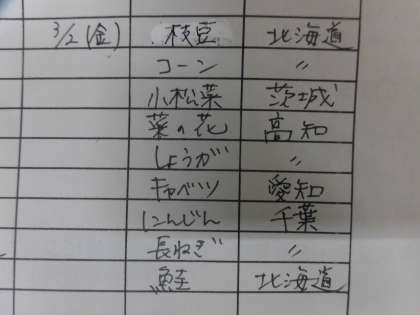 3/2(金) 枝豆 北海道
コーン 〃
小松菜 茨城
菜の花 高知
しょうが 〃
キャベツ 愛知
にんじん 千葉
長ねぎ 〃
鮭 北海道